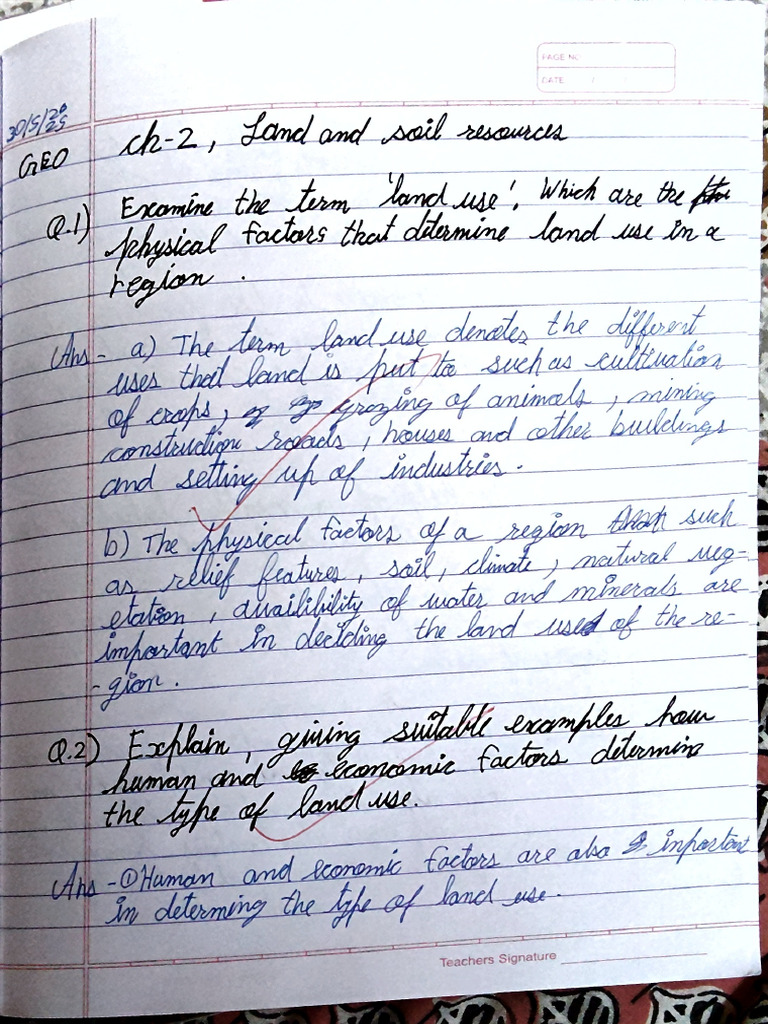 PAGE NO
DATE / /
30/5/20
25
GEO
ch-2, Land and soil resources
Q.1) Examine the term 'land use'. Which are the
physical factors that determine land use in a
region.
Ans - a) The term land use denotes the different
uses that land is put to such as cultivation
of crops, grazing of animals, mining
construction roads, houses and other buildings
and setting up of industries.
b) The physical factors of a region such
as relief features, soil, climate, natural veg-
etation, availibility of water and minerals are
important in deciding the land used of the re-
-gion.
Q.2) Explain, giving suitable examples how
human and economic factors determine
the type of land use.
Ans - ① Human and economic factors are also important
in determing the type of land use.
Teachers Signature